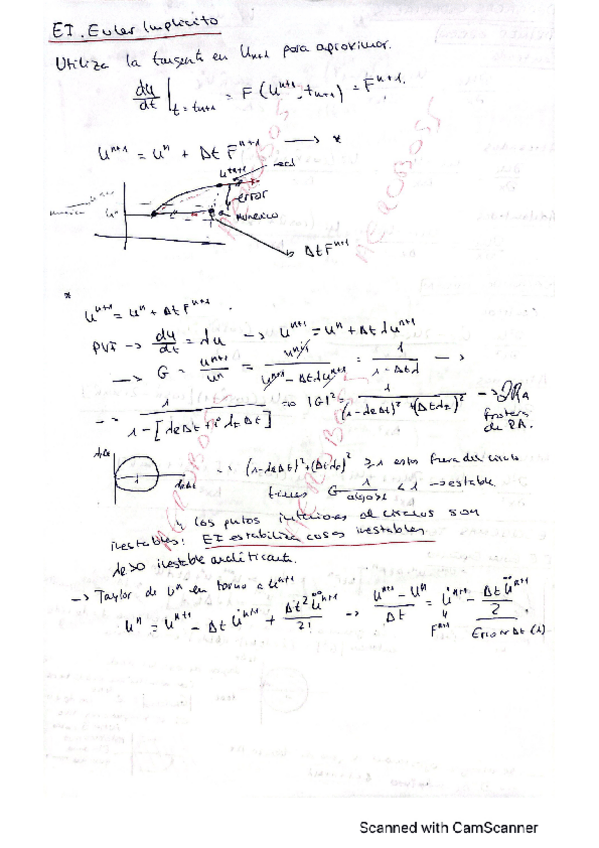 EI. Euler Implicito
Utiliza la tangente en Un+1 para aproximar.
du/dt |t=tn+1 = F(U^n+1, tn+1) = F^n+1.
U^n+1 = U^n + Δt F^n+1 → *
U^n+1 real
error
U^n
numerico
→ Δt F^n+1
*
U^n+1 = U^n + Δt F^n+1.
PVI → du/dt = λu → U^n+1 = U^n + Δt λ U^n+1
→ G = U^n+1/U^n = U^n+1/(U^n+1 - Δt λ U^n+1) = 1/(1 - Δt λ) →
→ 1/(1 - [λR Δt + i λI Δt]) => |G|² = 1/((1 - λR Δt)² + (Δt λI)²) → ∂RA
frontera
de RA.
(1 - λR Δt)² + (Δt λI)² ≥ 1 estas fuera del circulo
tienes G 1/algo≥1 < 1 → estable
↳ Los putos interiores al circulos son
inestables: EI estabiliza cosas inestables
λ>0 inestable analiticante.
→ Taylor de U^n en torno a U^n+1
U^n = U^n+1 - Δt U̇^n+1 + Δt² Ü^n+1/2! → (U^n+1 - U^n)/Δt = U̇^n+1 - Δt Ü^n+1/2.
F^n+1 Error ~ Δt (1)
MEROBOSS
MEROBOSS
MEROBOSS
MEROBOSS
Scanned with CamScanner